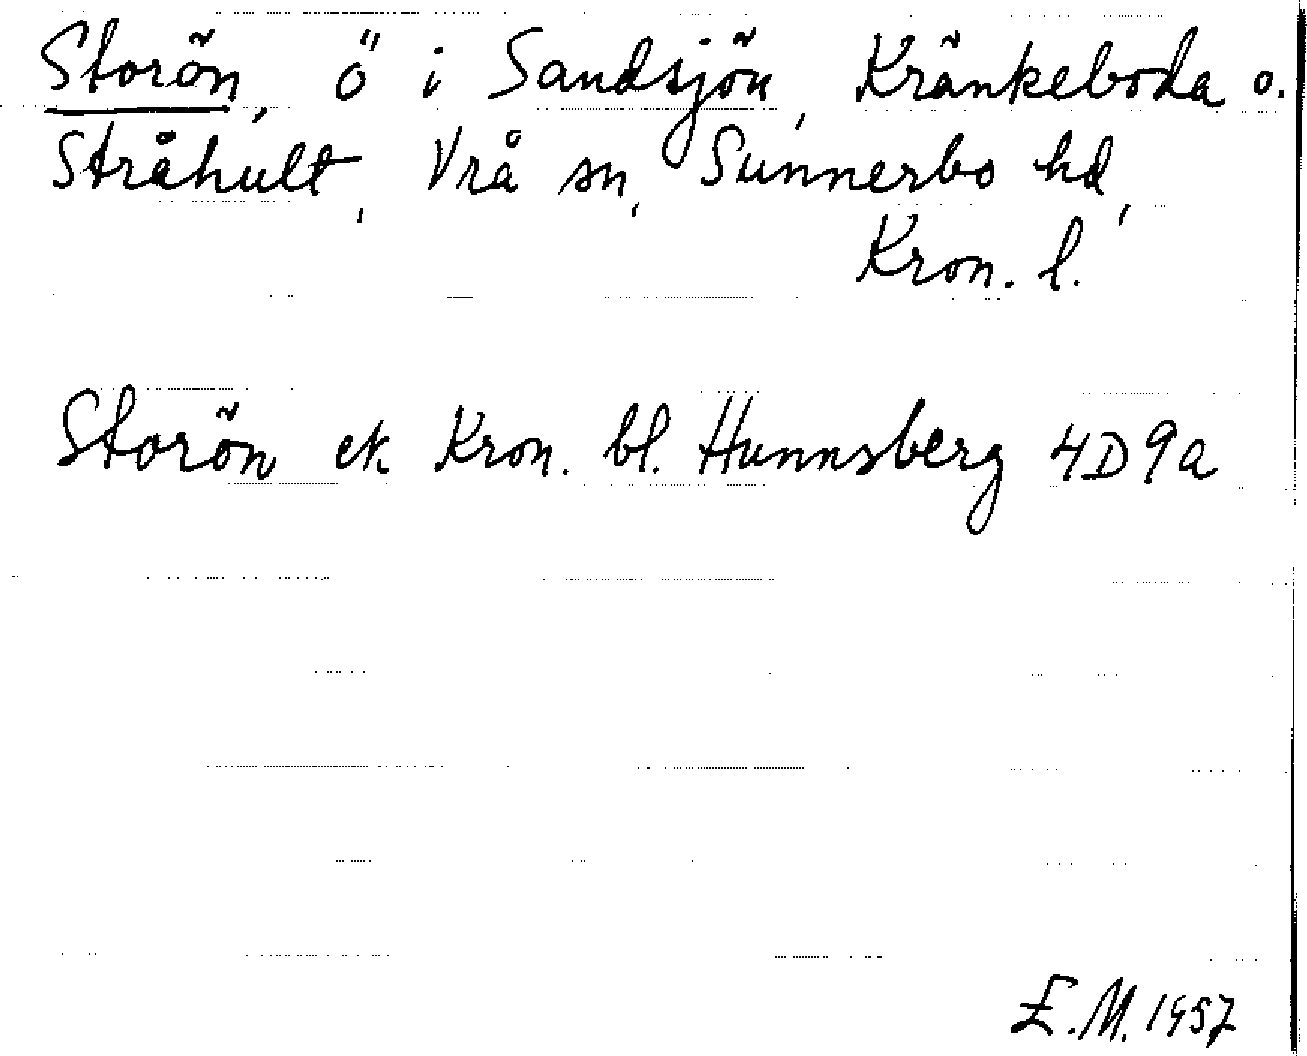 Storön, ö i Sandsjön, Kränkeboda o.
Stråhult, Vrå sn, Sunnerbo hd,
Kron. l.
Storön ek Kron. bl. Hunnsberg 4D9a
E.M. 1957